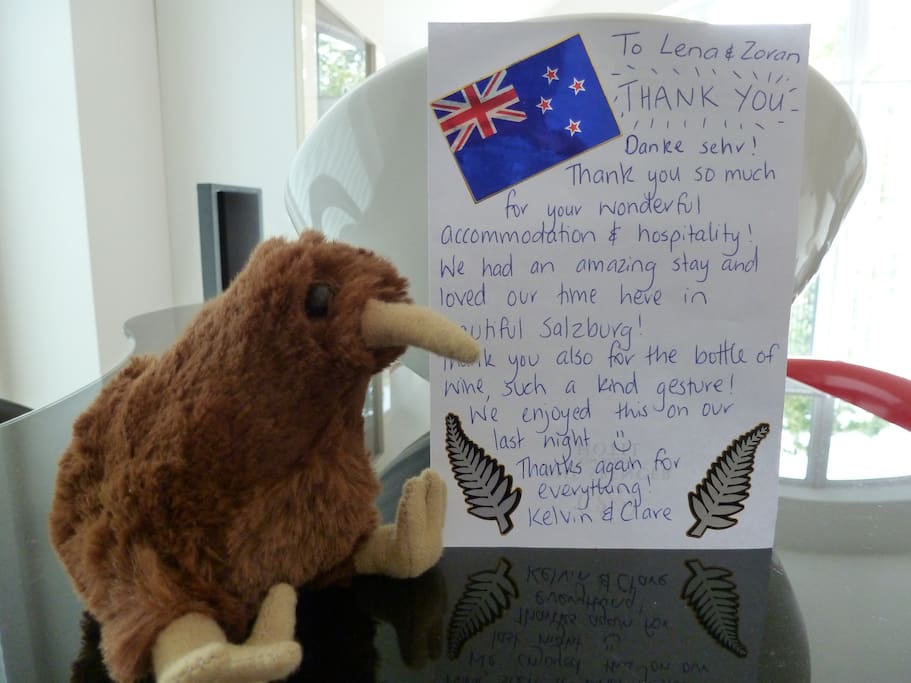 To Lena & Zoran
THANK YOU
Danke sehr!
Thank you so much
for your wonderful
accommodation & hospitality!
We had an amazing stay and
loved our time here in
Salzburg!
you also for the bottle of
wine, such a kind gesture!
We enjoyed this on our
last night
Thanks again for
everything!
Kelvin & Clare